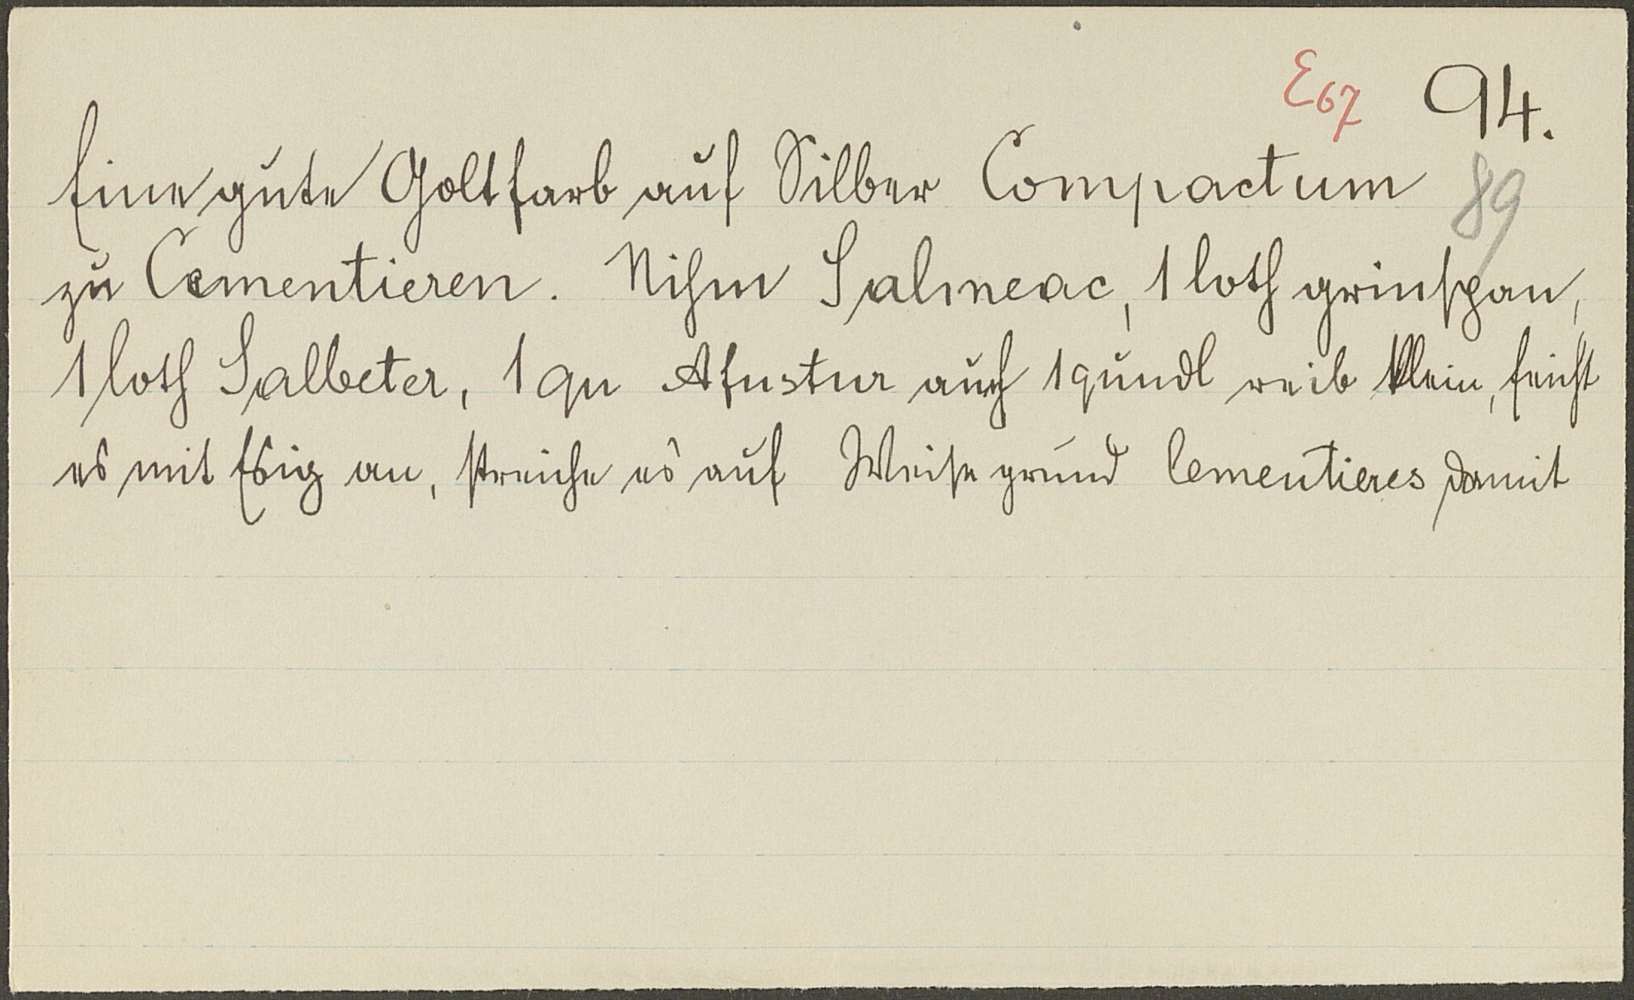 E67 94.
Eine gute Goltfarb auf Silber Compactum 89
zu Cementieren. Nihm Salmeac, 1 loth grinspan,
1 loth Salbeter, 1 qu Afustur auch 1 qundl reib klein, feicht
es mit Esig an, streiche es auf Weise grund Cementieres damit